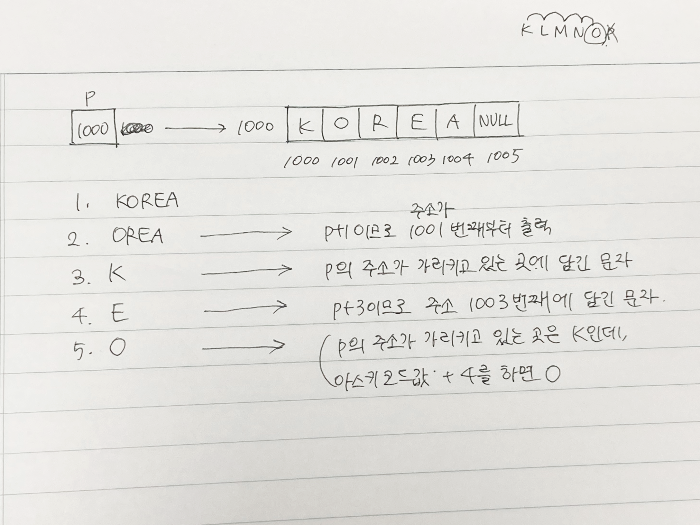 KLMNO
P
1000 → 1000 K O R E A NULL
1000 1001 1002 1003 1004 1005
1. KOREA
주소가
2. OREA → p+1이므로 1001 번째부터 출력
3. K → p의 주소가 가리키고 있는 곳에 담긴 문자
4. E → p+3이므로 주소 1003번째에 담긴 문자.
5. O → p의 주소가 가리키고 있는 곳은 K인데,
아스키코드값 + 4를 하면 O